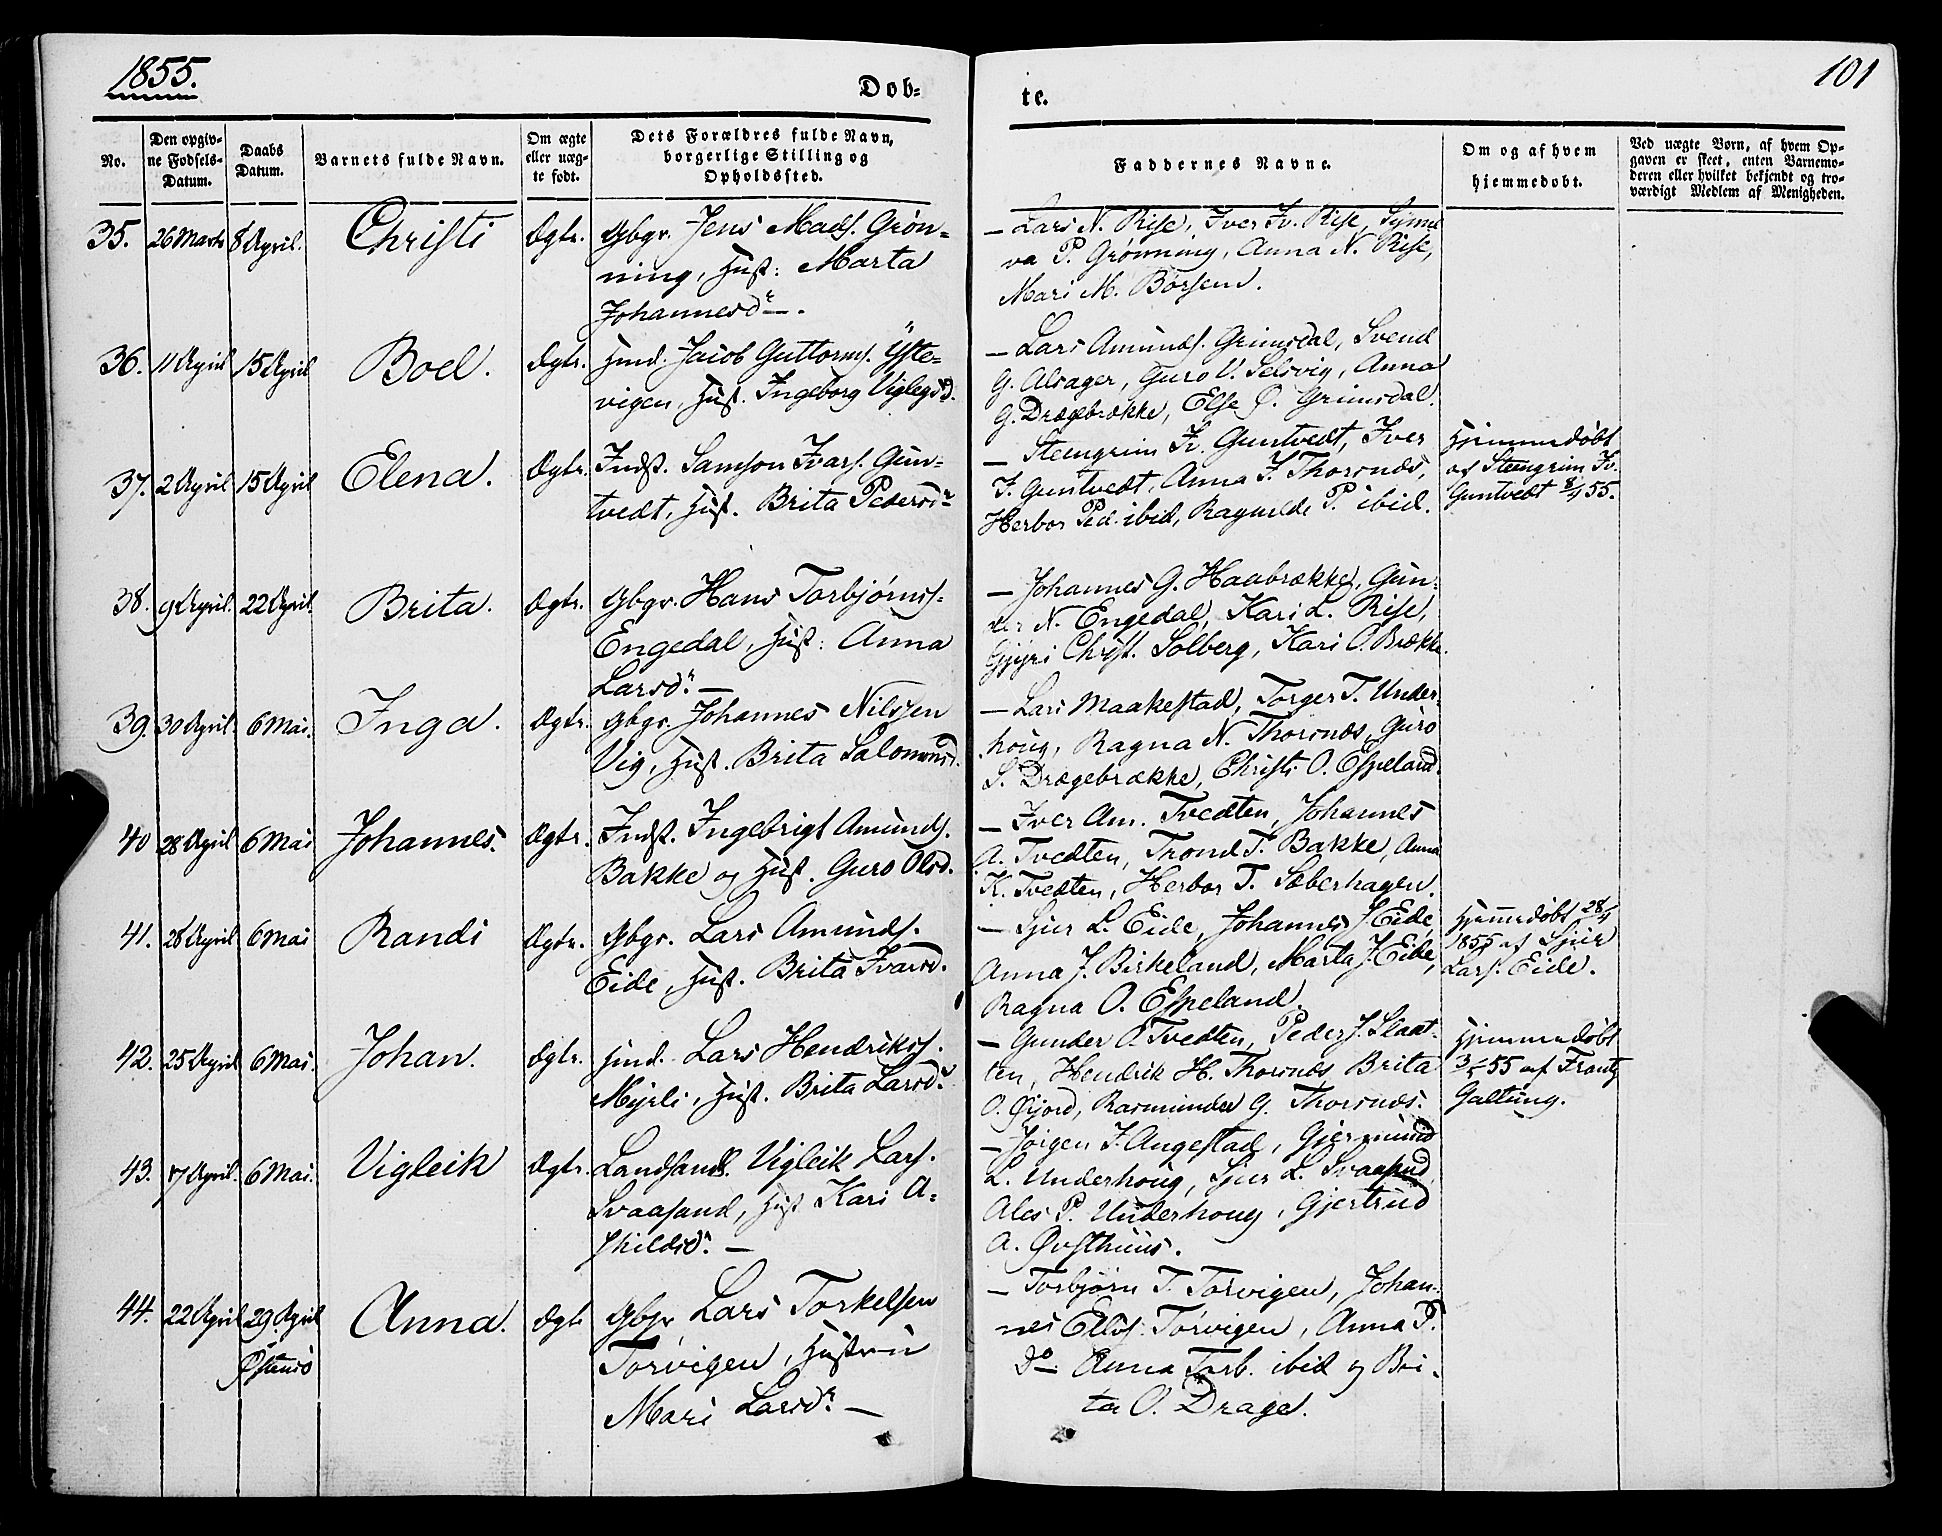 1855.
Dob-
te.
101
No.
Den opgiv-
ne Fødsels-
Datum.
Daabs
Datum.
Barnets fulde Navn.
Om ægte
eller uæg-
te født.
Dets Forældres fulde Navn,
borgerlige Stilling og
Opholdssted.
Faddernes Navne.
Om og af hvem
hjemmedøbt.
Ved uægte Børn, af hvem Op-
gaven er skeet, enten Barnemo-
deren eller hvilket bekjendt og tro-
værdigt Medlem af Menigheden.
35. 26 Marts 8 April. Christi Ægte. Gbgr. Jens Mads. Grøn-
ning, Hust: Marta
Johannesdr. —.
— Lars N. Rise, Iver Iv. Rise, Synne
va P. Grønning, Anna N. Rise,
Mari M. Børsem.
36. 11 April 15 April Boel. Ægte. Hmd. Jacob Guttorms. Yste-
vigen, Hust. Ingeborg Viglegsd.
— Lars Amunds. Grimsdal, Svend
G. Alsager, Guro V. Selsvig, Anna
G. Drægebrække, Else O. Grimsdal.
37. 2 April 15 April Elena. Ægte. Indst. Samson Ivars. Gun-
tvedt, Hust. Brita Pedersdr
— Steengrim Iv. Guntvedt, Iver
I. Guntvedt, Anna I. Thorsnæs,
Herbor Ped. ibid, Ragnilde P. ibid.
Hjemmedøbt
af Steengrim Iv.
Guntvedt 8/4 55.
38. 9 April. 22 April. Brita. Ægte. Gbgr. Hans Torbjørns.
Engedal, Hust: Anna
Larsdr. —
— Johannes G. Haabrække, Gun-
der N. Engedal, Kari L. Rise,
Gjøri Christ. Solberg, Kari O. Brække.
39. 30 April. 6 Mai. Inga. Ægte. Gbgr. Johannes Nilssen
Vig, Hust. Brita Salomonsd.
— Lars Maakestad, Torger T. Under-
houg, Ragna N. Thorsnæs, Guro
S. Drægebrække, Christi O. Espeland.
40 28 April 6 Mai Johannes. Ægte. Indst. Ingebrigt Amunds.
Bakke og Hust. Guro Olsd.
— Iver Am. Tvedten, Johannes
A. Tvedten, Trond T. Bakke, Anna
K. Tvedten, Herbor T. Sæberhagen.
41. 28 April 6 Mai Randi Ægte. Gbgr. Lars Amunds.
Eide, Hust. Brita Ivarsd.
— Sjur L. Eide, Johannes J Eide,
Anna J. Birkeland, Marta J Eide,
Ragna O. Espeland.
Hjemmedøbt 28/4
1855 af Sjur
Lars. Eide.
42. 25 April 6 Mai. Johan. Ægte. Hmd. Lars Hendriks.
Myrli, Hust. Brita Larsdr.
— Gunder O. Tvedten, Peder J. Slaat-
ten, Hendrik H. Thorsnæs, Brita
O. Øijord, Rasmunder G. Thorsnæs.
Hjemmedøbt
3/5 55 af Frantz
Galtung.
43. 17 April. 6 Mai. Vigleik Ægte. Landhandl. Vigleik Lars.
Svaasand, Hust Kari A-
skildsdr. —
— Jørgen J. Augestad, Gjermund
L. Underhoug, Sjur L. Svaasand,
Ales P. Underhoug, Gjertrud
A. Øvsthuus.
44. 22 April 29 April
Østensø Anna. Ægte Gbgr Lars Torkelsen
Torvigen, Hustru
Mari Larsdr. —
— Torbjørn T. Torvigen, Johan-
nes Ellvs. Torvigen, Anna P.
Do Anna Torb. ibid og Bri-
ta O. Drage.